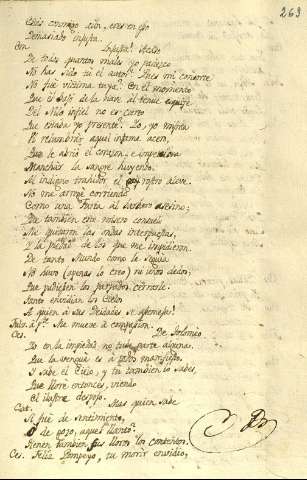 263
Estás conmigo
Demasiado injusta.
Cor. Injusta? Cielos
De todos quantos males yo padezco
No has sido tú el autor? Pues mi consorte
No fué víctima tuya? En el momento
Que él bajó de la nave al tenue esquife
Del Nilo infiel no es cierto
Que estaba yo presente? Yo, yo misma
Vi relumbrar aquel infame acero,
Que le abrió el corazon, e
Manchóse la sangre huyendo.
Al indigno traidor el rostro aleve.
No me arrojé corriendo
Como una furia al bárbaro asesino;
Pero también este mísero consuelo
Me quitaron las ondas interpuestas,
Y la piedad de los que me impidieron.
De tanto Mundo como le seguía
No hubo (apenas lo creo) ni unos dedos,
Que pudiesen los parpados cerrarle:
Tanto envidian los Cielos
Al quien á sus Deidades se asemeja!
Me mueve á compasion.
Ces. De Tolomeo
Yo en la impiedad no tube parte alguna.
Que la vengué es á todos manifiesto,
Y sabe el Cielo, y tu tambien lo sabes,
Que lloré entonces, viendo
el ilustre despojo.
Cor. Mas quien sabe
Si fué de sentimiento,
O de gozo, aquel llanto?
Tienen tambien sus lloros los contentos.
Ces. Feliz Pompeyo, tu morir envidio,